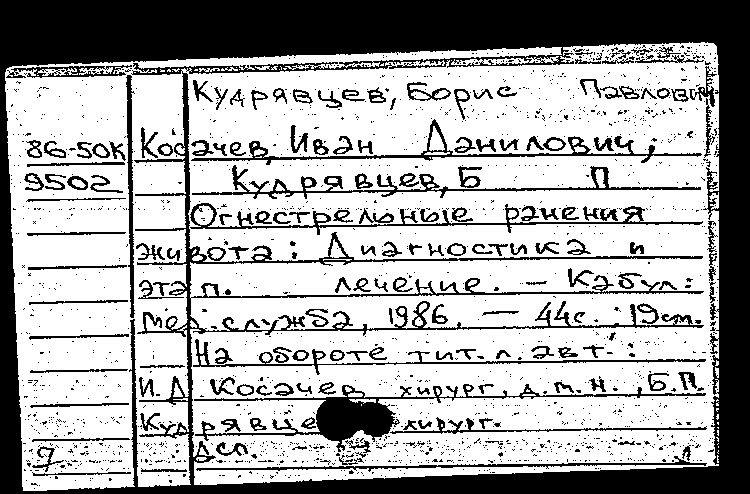 Кудрявцев, Борис Павлович
86-50К Косачев, Иван Данилович;
9502 Кудрявцев, Б П
Огнестрельные ранения
живота: Диагностика и
этап. лечение. – Кабул:
Мед. служба, 1986. – 44с.; 19см.
На обороте тит. л. авт.:
И.Д Косачев, хирург, д.м.н., Б.П.
Кудрявце хирург.
ДСП.